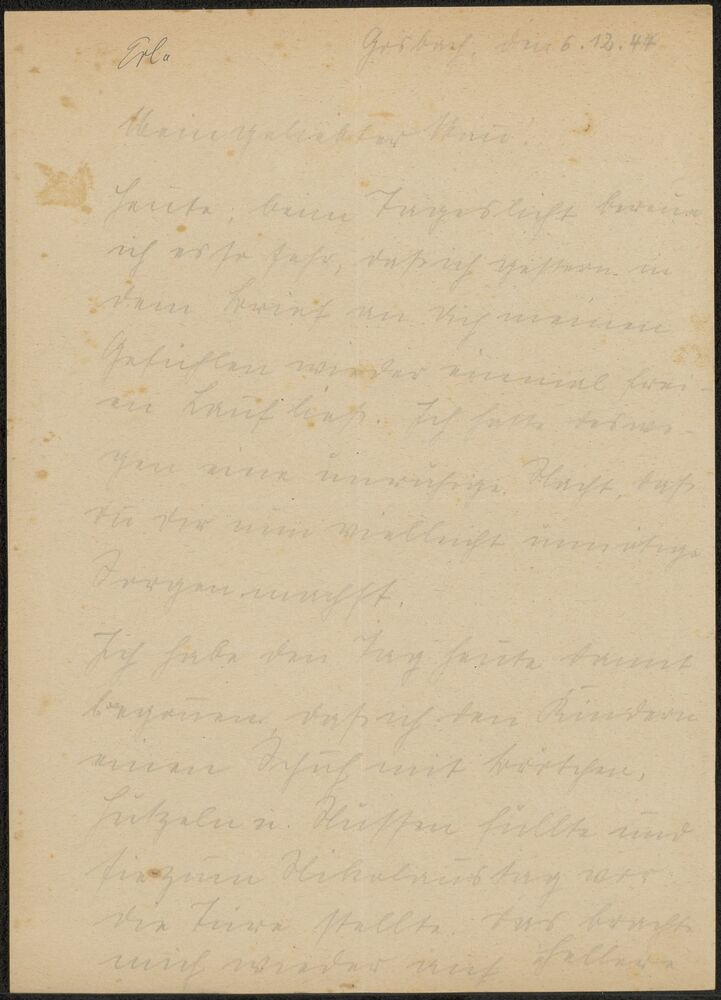 Erl.
Gosbach, den 6.12.44
Mein geliebter Mann!
Heute, beim Tageslicht bereue
ich es so sehr, daß ich gestern in
dem Brief an Dich meinen
Gefühlen wieder einmal frei-
en Lauf ließ. Ich hatte deswe-
gen eine unruhige Nacht, daß
du dir nun vielleicht unnötige
Sorgen machst.
Ich habe den Tag heute damit
begonnen, daß ich den Kindern
einen Schuh mit Brötchen,
Hutzeln u. Nüssen füllte und
sie zum Nikolaustag vor
die Türe stellte. Das brachte
mich wieder auf hellere